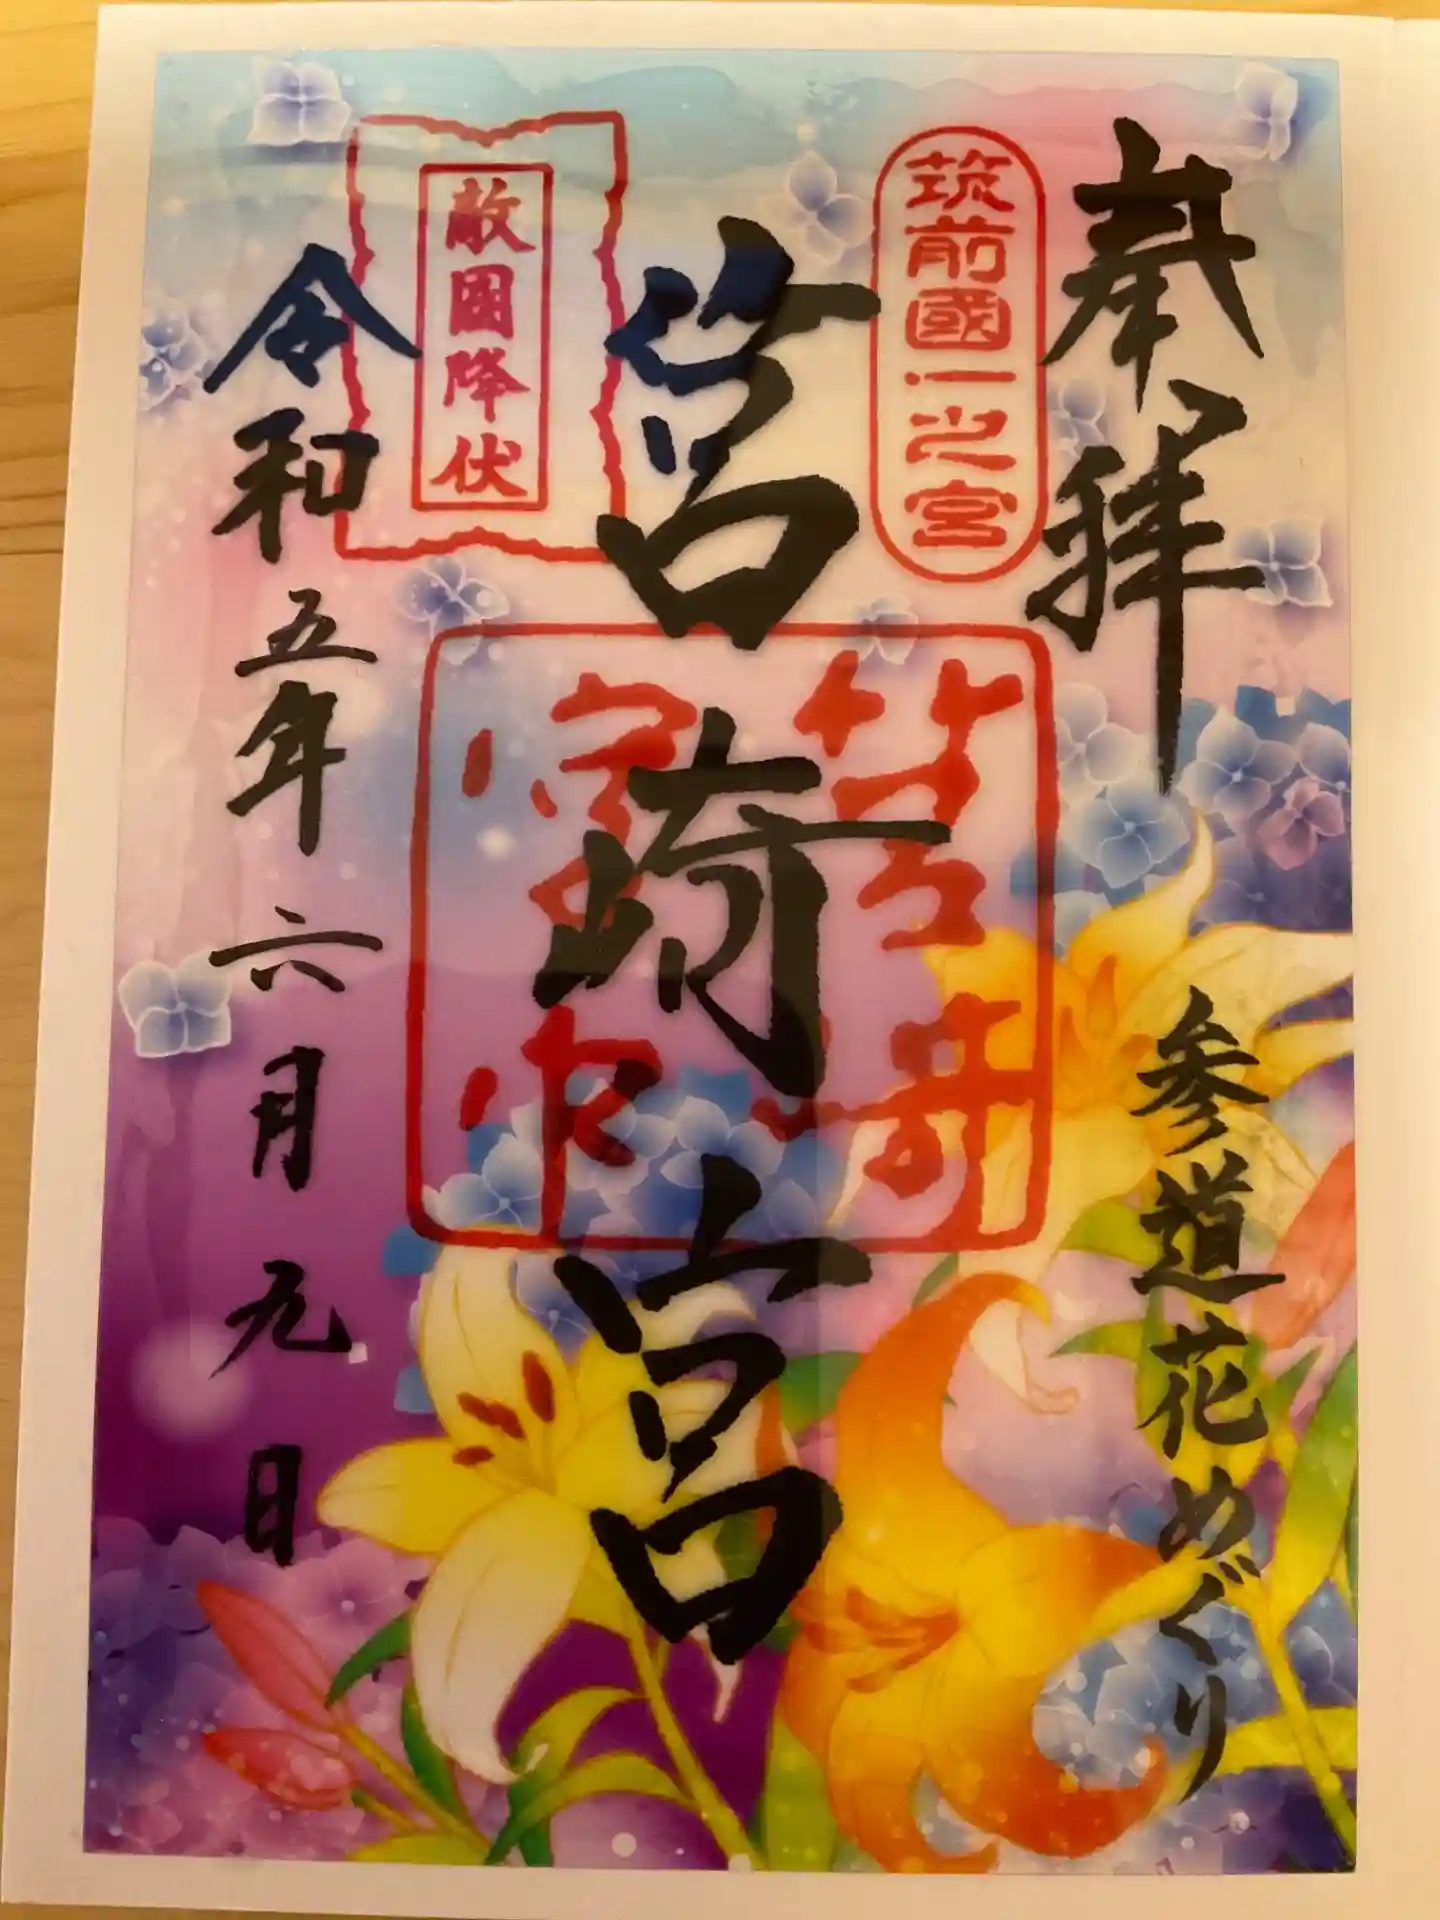 奉拝
参道花めぐり
筑前國一之宮
筥崎宮
敵国降伏
筥崎
令和五年六月九日